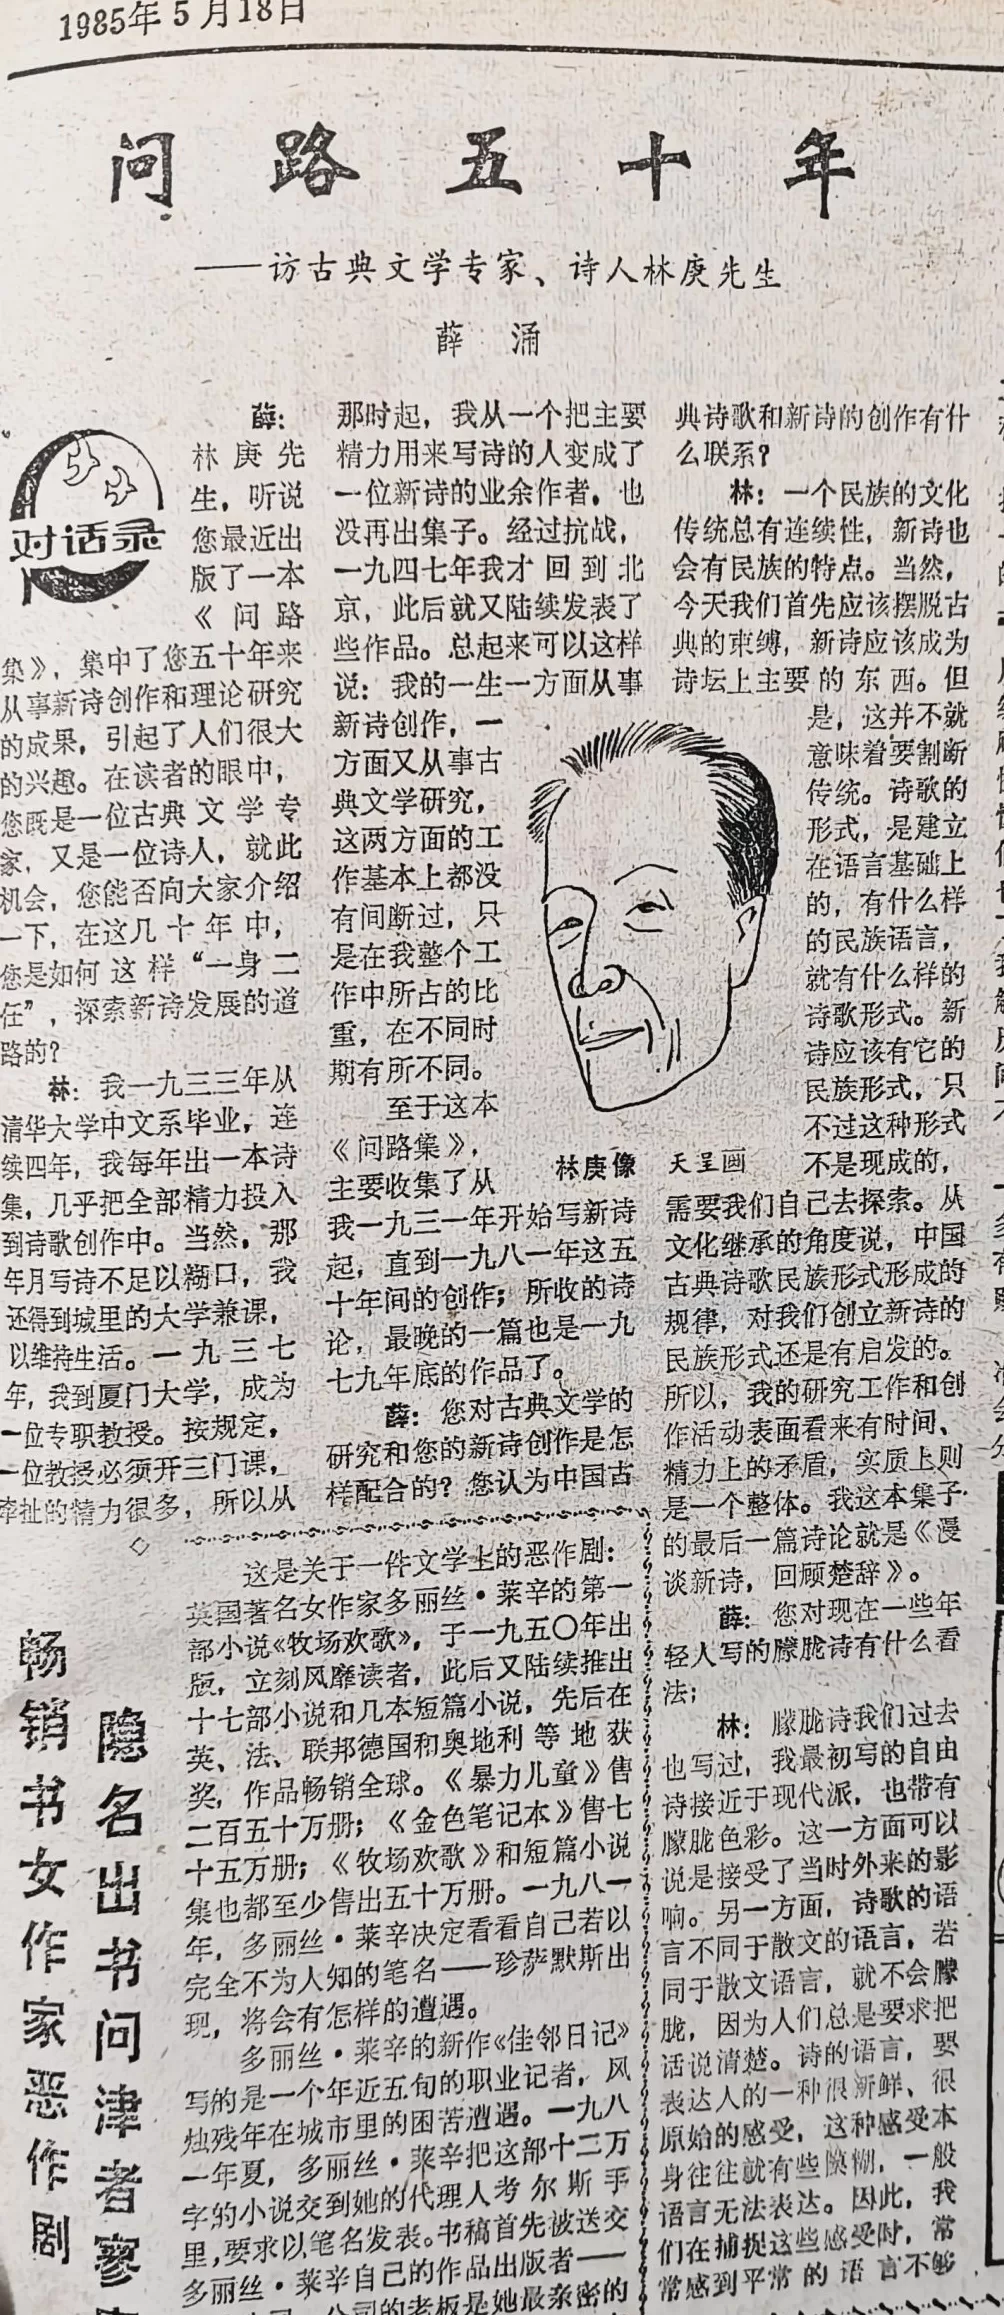 1985年5月18日
问路五十年
——访古典文学专家、诗人林庚先生
薛 涌
对话录
薛:
林庚先
生，听说
您最近出
版了一本
《问路
集》，集中了您五十年来
从事新诗创作和理论研究
的成果，引起了人们很大
的兴趣。在读者的眼中，
您既是一位古典文学专
家，又是一位诗人，就此
机会，您能否向大家介绍
一下，在这几十年中，
您是如何这样“一身二
任”，探索新诗发展的道
路的？
林：我一九三三年从
清华大学中文系毕业，连
续四年，我每年出一本诗
集，几乎把全部精力投入
到诗歌创作中。当然，那
年月写诗不足以糊口，我
还得到城里的大学兼课，
以维持生活。一九三七
年，我到厦门大学，成为
一位专职教授。按规定，
一位教授必须开三门课，
牵扯的精力很多，所以从
那时起，我从一个把主要
精力用来写诗的人变成了
一位新诗的业余作者，也
没再出集子。经过抗战，
一九四七年我才回到北
京，此后就又陆续发表了
些作品。总起来可以这样
说：我的一生一方面从事
新诗创作，一
方面又从事古
典文学研究，
这两方面的工
作基本上都没
有间断过，只
是在我整个工
作中所占的比
重，在不同时
期有所不同。
至于这本
《问路集》，
主要收集了从
我一九三一年开始写新诗
起，直到一九八一年这五
十年间的创作；所收的诗
论，最晚的一篇也是一九
七九年底的作品了。
薛：您对古典文学的
研究和您的新诗创作是怎
样配合的？您认为中国古
典诗歌和新诗的创作有什
么联系？
林：一个民族的文化
传统总有连续性，新诗也
会有民族的特点。当然，
今天我们首先应该摆脱古
典的束缚，新诗应该成为
诗坛上主要的东西。但
是，这并不就
意味着要割断
传统。诗歌的
形式，是建立
在语言基础上
的，有什么样
的民族语言，
就有什么样的
诗歌形式。新
诗应该有它的
民族形式，只
不过这种形式
不是现成的，
需要我们自己去探索。从
文化继承的角度说，中国
古典诗歌民族形式形成的
规律，对我们创立新诗的
民族形式还是有启发的。
所以，我的研究工作和创
作活动表面看来有时间、
精力上的矛盾，实质上则
是一个整体。我这本集子
的最后一篇诗论就是《漫
谈新诗，回顾楚辞》。
薛：您对现在一些年
轻人写的朦胧诗有什么看
法；
林：朦胧诗我们过去
也写过，我最初写的自由
诗接近于现代派，也带有
朦胧色彩。这一方面可以
说是接受了当时外来的影
响。另一方面，诗歌的语
言不同于散文的语言，若
同于散文语言，就不会朦
胧，因为人们总是要求把
话说清楚。诗的语言，要
表达人的一种很新鲜、很
原始的感受，这种感受本
身往往就有些模糊，一般
语言无法表达。因此，我
们在捕捉这些感受时，常
常感到平常的语言不够
林庚像 天呈画
畅销书女作家恶作剧
隐名出书问津者寥
这是关于一件文学上的恶作剧：
英国著名女作家多丽丝·莱辛的第一
部小说《牧场欢歌》，于一九五〇年出
版，立刻风靡读者，此后又陆续推出
十七部小说和几本短篇小说，先后在
英、法、联邦德国和奥地利等地获
奖，作品畅销全球。《暴力儿童》售
二百五十万册；《金色笔记本》售七
十五万册；《牧场欢歌》和短篇小说
集也都至少售出五十万册。一九八一
年，多丽丝·莱辛决定看看自己若以
完全不为人知的笔名——珍萨默斯出
现，将会有怎样的遭遇。
多丽丝·莱辛的新作《佳邻日记》
写的是一个年近五旬的职业记者，风
烛残年在城市里的困苦遭遇。一九八
一年夏，多丽丝·莱辛把这部十二万
字的小说交到她的代理人考尔斯手
里，要求以笔名发表。书稿首先被送交
多丽丝·莱辛自己的作品出版者——
公司的老板是她最亲密的